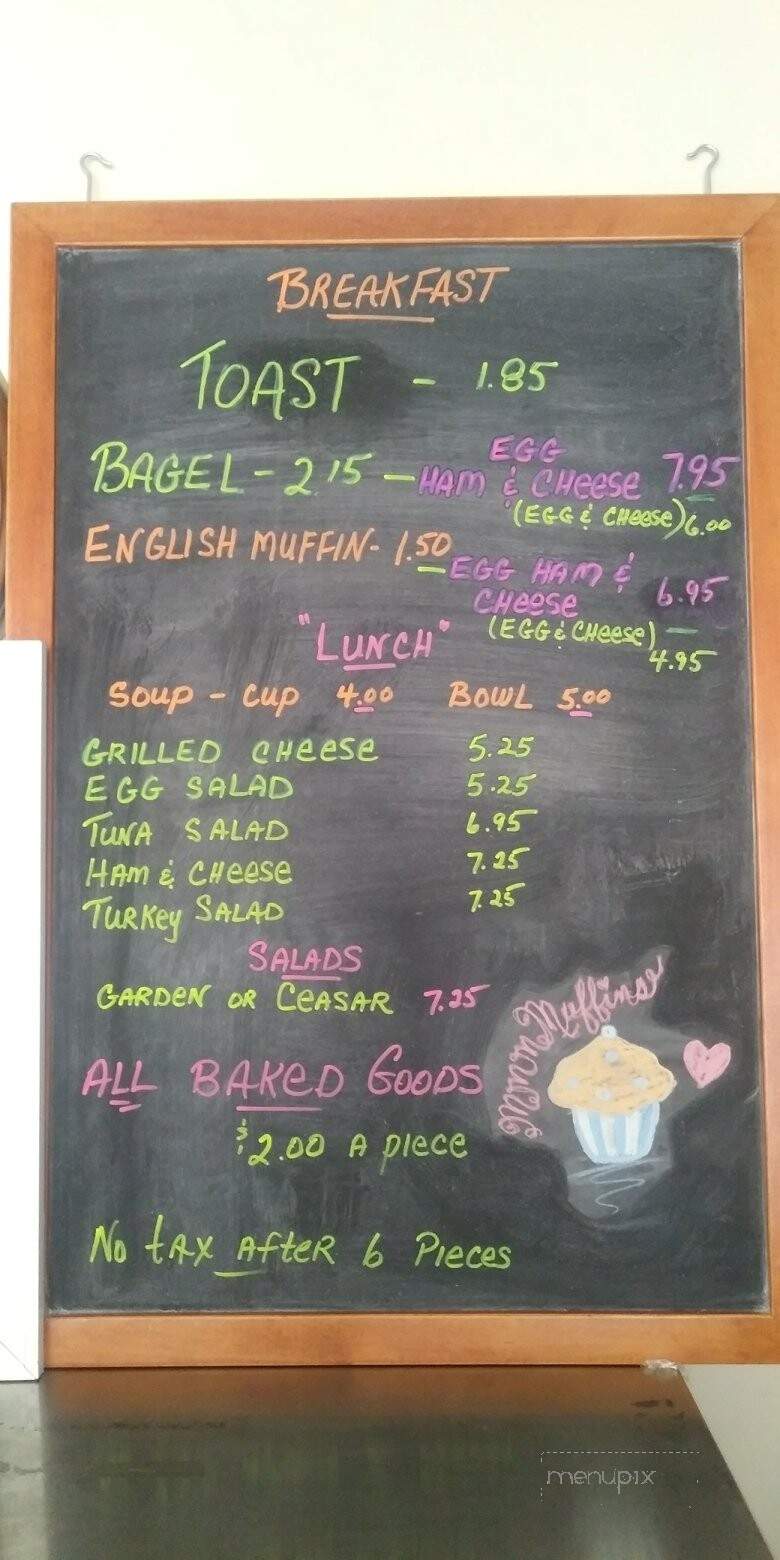 BREAKFAST
TOAST - 1.85
BAGEL - 2.15 - EGG HAM & CHEESE 7.95
(EGG & CHEESE) 6.00
ENGLISH MUFFIN - 1.50
- EGG HAM & CHEESE 6.95
(EGG & CHEESE) - 4.95
"LUNCH"
SOUP - CUP 4.00 BOWL 5.00
GRILLED CHEESE 5.25
EGG SALAD 5.25
TUNA SALAD 6.95
HAM & CHEESE 7.25
TURKEY SALAD 7.25
SALADS
GARDEN OR CEASAR 7.25
ALL BAKED GOODS
$2.00 A PIECE
Mmmm Muffins
NO TAX AFTER 6 PIECES
menupix